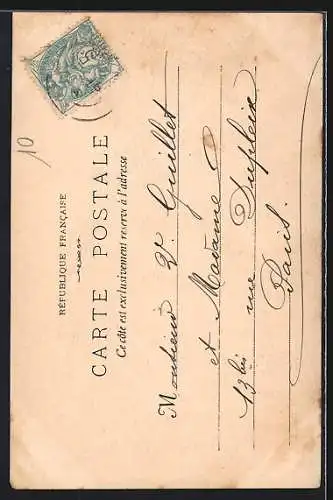 RÉPUBLIQUE FRANÇAISE
CARTE POSTALE
Ce côté est exclusivement reservé à l'adresse
Monsieur V. Guillet
et Madame
13 bis rue Dupleix
Paris.
10